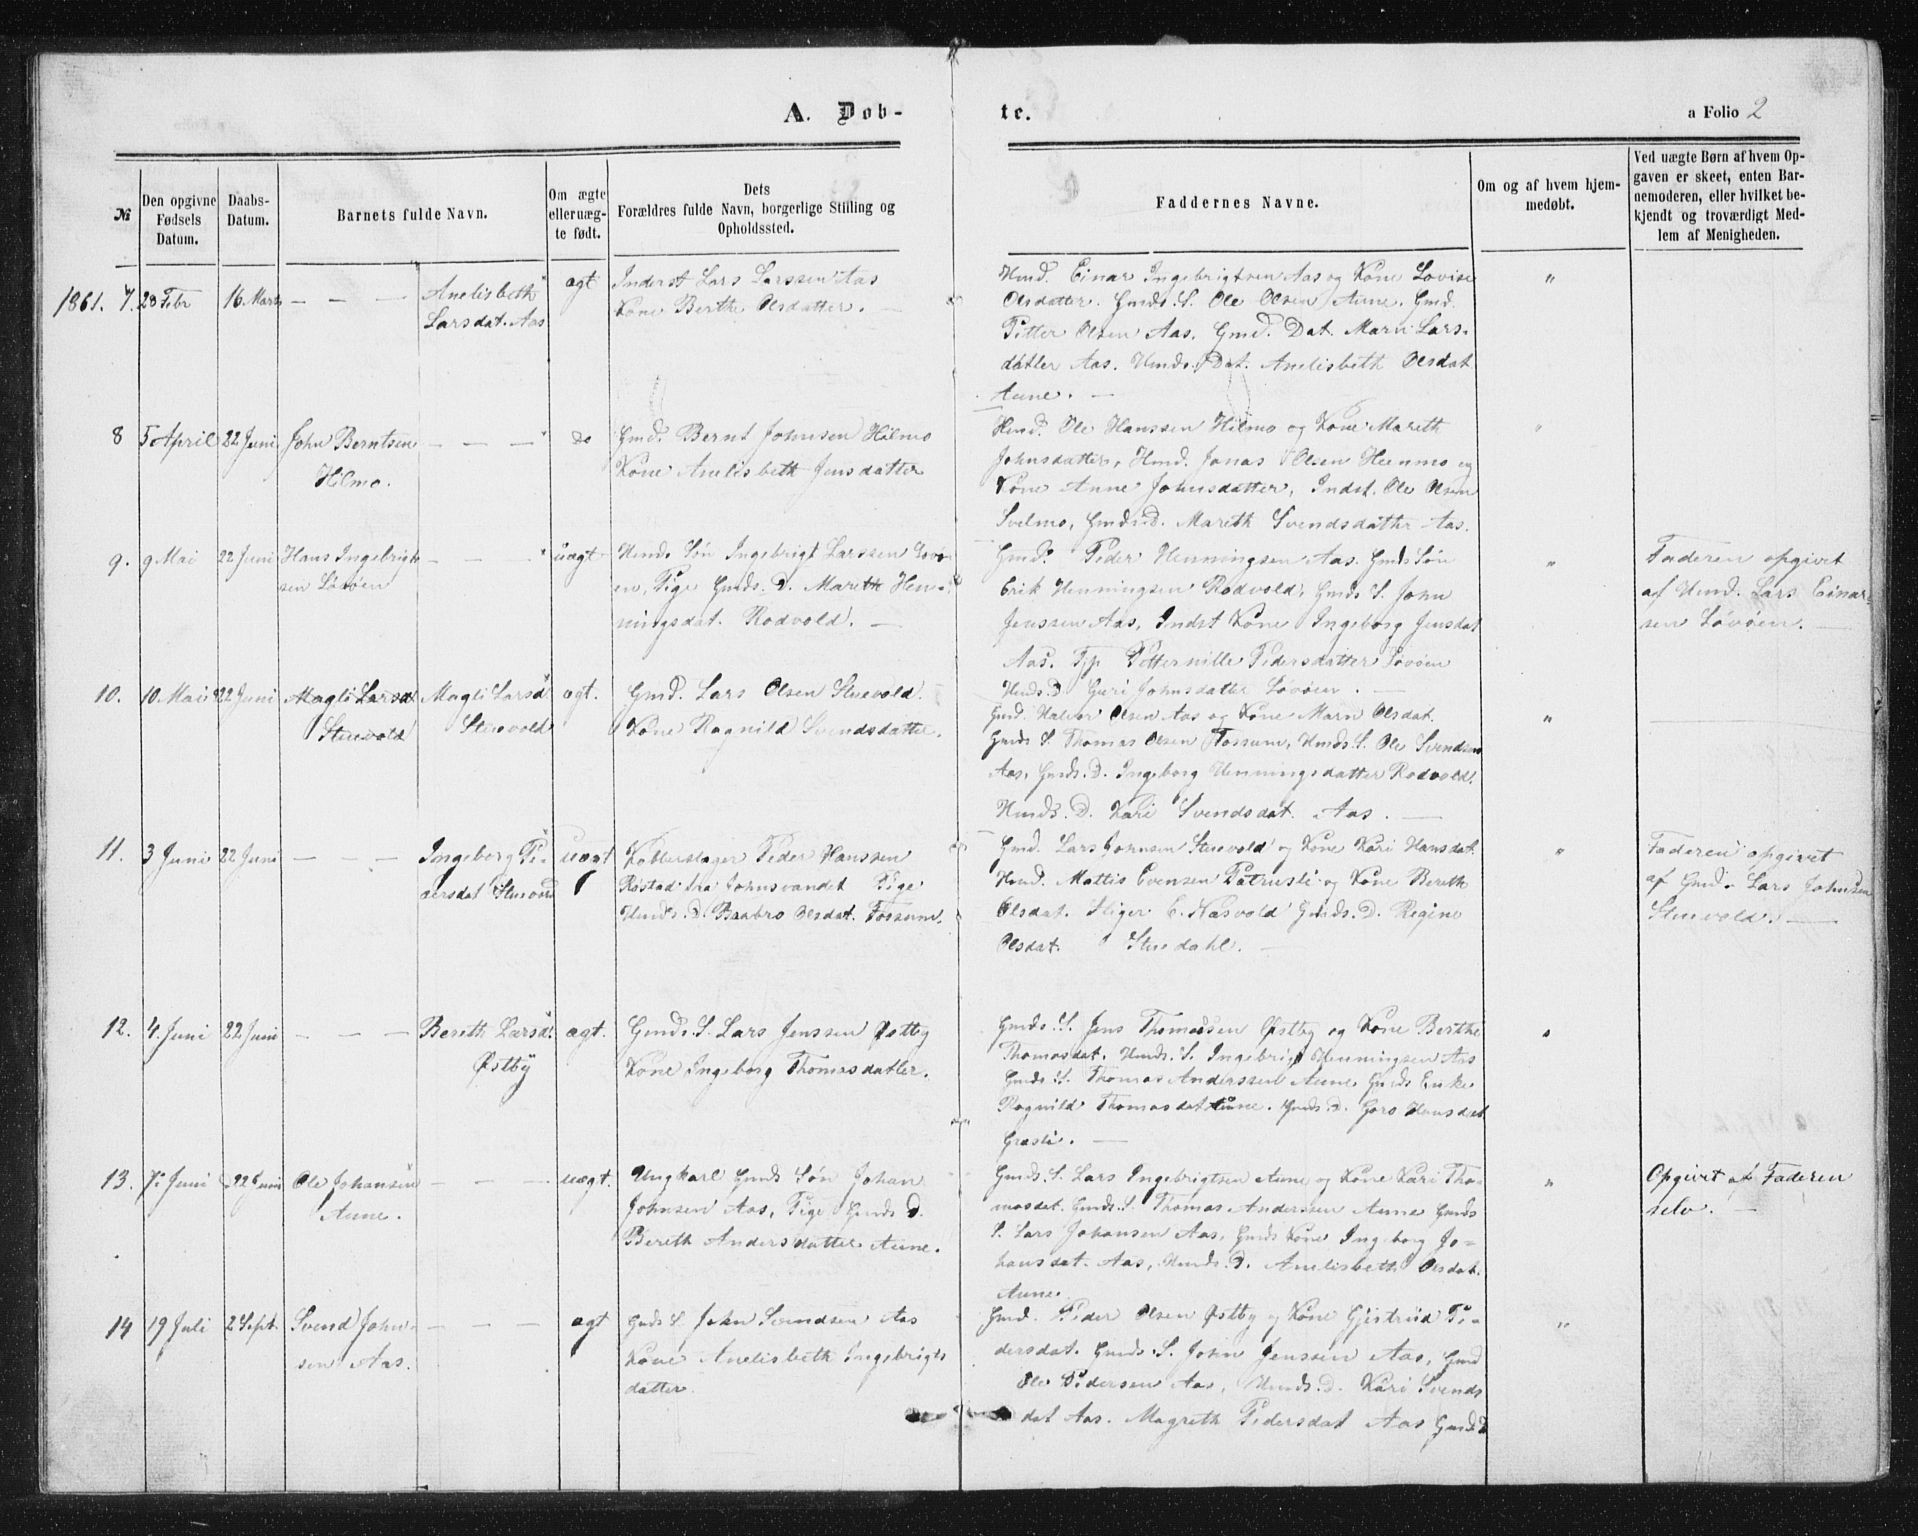 A. Døb-
te.
a Folio 2
№
Den opgivne Fødsels Datum.
Daabs-Datum.
Barnets fulde Navn.
Om ægte eller uæg-te født.
Dets Forældres fulde Navn, borgerlige Stilling og Opholdssted.
Faddernes Navne.
Om og af hvem hjem-medøbt.
Ved uægte Børn af hvem Op-
gaven er skeet, enten Bar-
nemoderen, eller hvilket be-
kjendt og troværdigt Med-
lem af Menigheden.
1861. 7. 28 Febr 16 Marts — — — Anelisbeth
Larsdat. Aas
ægt
Inderst Lars Larssen Aas
Kone Berthe Olsdatter. —
Hmd. Einar Ingebrigtsen Aas og Kone Lovise
Olsdatter. Gmds. S. Ole Olsen Aune. Gmd.
Petter Olsen Aas. Gmd. Dat. Marn Lars-
datter Aas. Hmds. Dat. Anelisbeth Olsdat
Aune. —
"
8 5 April 22 Juni John Berntsen — — —
Hilmo.
do
Gmd. Bernt Johnsen Hilmo
Kone Anelisbeth Jensdatter
Hmd. Ole Hanssen Hilmo og Kone Mareth
Johnsdatter, Hmd. Jonas Olsen Hemmo og
Kone Anne Johnsdatter, Indst. Ole Olsen
Svelmo, Gmds. D. Mareth Svendsdatter Aas.
"
9. 9 Mai 22 Juni Hans Ingebrigt-
sen Løvøen
— — —
uægt
Hmds Søn Ingebrigt Larssen Løvø-
en, Pige Gmds. D. Mareth Hen-
ningsdat. Rodvold. —
Gmd. Peder Henningsen Aas. Gmds Søn
Erik Henningsen Rodvold, Gmds S. John
Jenssen Aas, Indst Kone Ingeborg Jensdat
Aas. Petternille Pedersdatter Løvøen
Hmds. D Guri Johnsdatter Løvøen. —
"
Faderen opgivet
af Hmd. Lars Einar-
sen Løvøen. —
10. 10 Mai 22 Juni Magli Larsd Magli Larsd
Stuevold Stuevold
ægt.
Gmd. Lars Olsen Stuevold.
Kone Ragnild Svendsdatter.
Gmd. Halvor Olsen Aas og Kone Marn Olsdat.
Gmds S. Thomas Olsen Fossum, Hmds. S. Ole Svendsen
Aas, Gmds. D. Ingeborg Henningsdatter Rodvold.
Hmds. D. Kari Svendsdat. Aas. —
"
11. 3 Juni 22 Juni — — — Ingeborg Pe-
dersdat Stuevold
uægt
Kobberslager Peder Hanssen
Røstad fra Jonsvandet Pige
Hmds. D. Baabro Olsdat. Fossum.
Gmd. Lars Johnsen Stuevold og Kone Kari Hansdat.
Hmd. Mattis Evensen Patrusli og Kone Bereth
Olsdat. Stiger E. Hasvold Gmds. D. Regine
Olsdat. Stuedahl. —
"
Faderen opgivet
af Gmd. Lars Johnsen
Stuevold. —
12. 4. Juni 22 Juni — — — Bereth Larsd.
Østby
ægt.
Gmds. S. Lars Jenssen Østby
Kone Ingeborg Thomasdatter.
Gmds. S. Jens Thomassen Østby og Kone Berthe
Thomasdat. Hmds. S. Ingebrigt Henningsen Aas
Gmds. S. Thomas Anderssen Aune, Gmds Enke
Ragnild Thomasdat Aune. Gmds. D. Goro Hansdat
Græsli. —
"
13. 7. Juni 22 Juni Ole Johansen — — —
Aune.
uægt.
Ungkarl Gmds Søn Johan
Johnsen Aas, Pige Gmds D.
Bereth Andersdatter Aune.
Gmds. S. Lars Ingebrigtsen Aune og Kone Kari Tho-
masdat. Gmds. S. Thomas Anderssen Aune Gmds
S. Lars Johansen Aas, Gmds Kone Ingeborg Jo-
hansdat. Aas, Hmds. D. Anelisbeth Olsdat.
Aune.
"
Opgivet af Faderen
selv. —
14 19 Juli 2 Sept. Svend John- — — —
sen Aas.
ægt
Gmds S. John Svendsen Aas
Kone Anelisbeth Ingebrigts
datter.
Gmd. Peder Olsen Østby og Kone Gjertrud Pe-
dersdat. Gmds. S. John Jenssen Aas, Gmd
Ole Pedersen Aas, Hmds. D. Kari Svends
dat Aas. Magreth Pedersdat Aas Gmds D
"